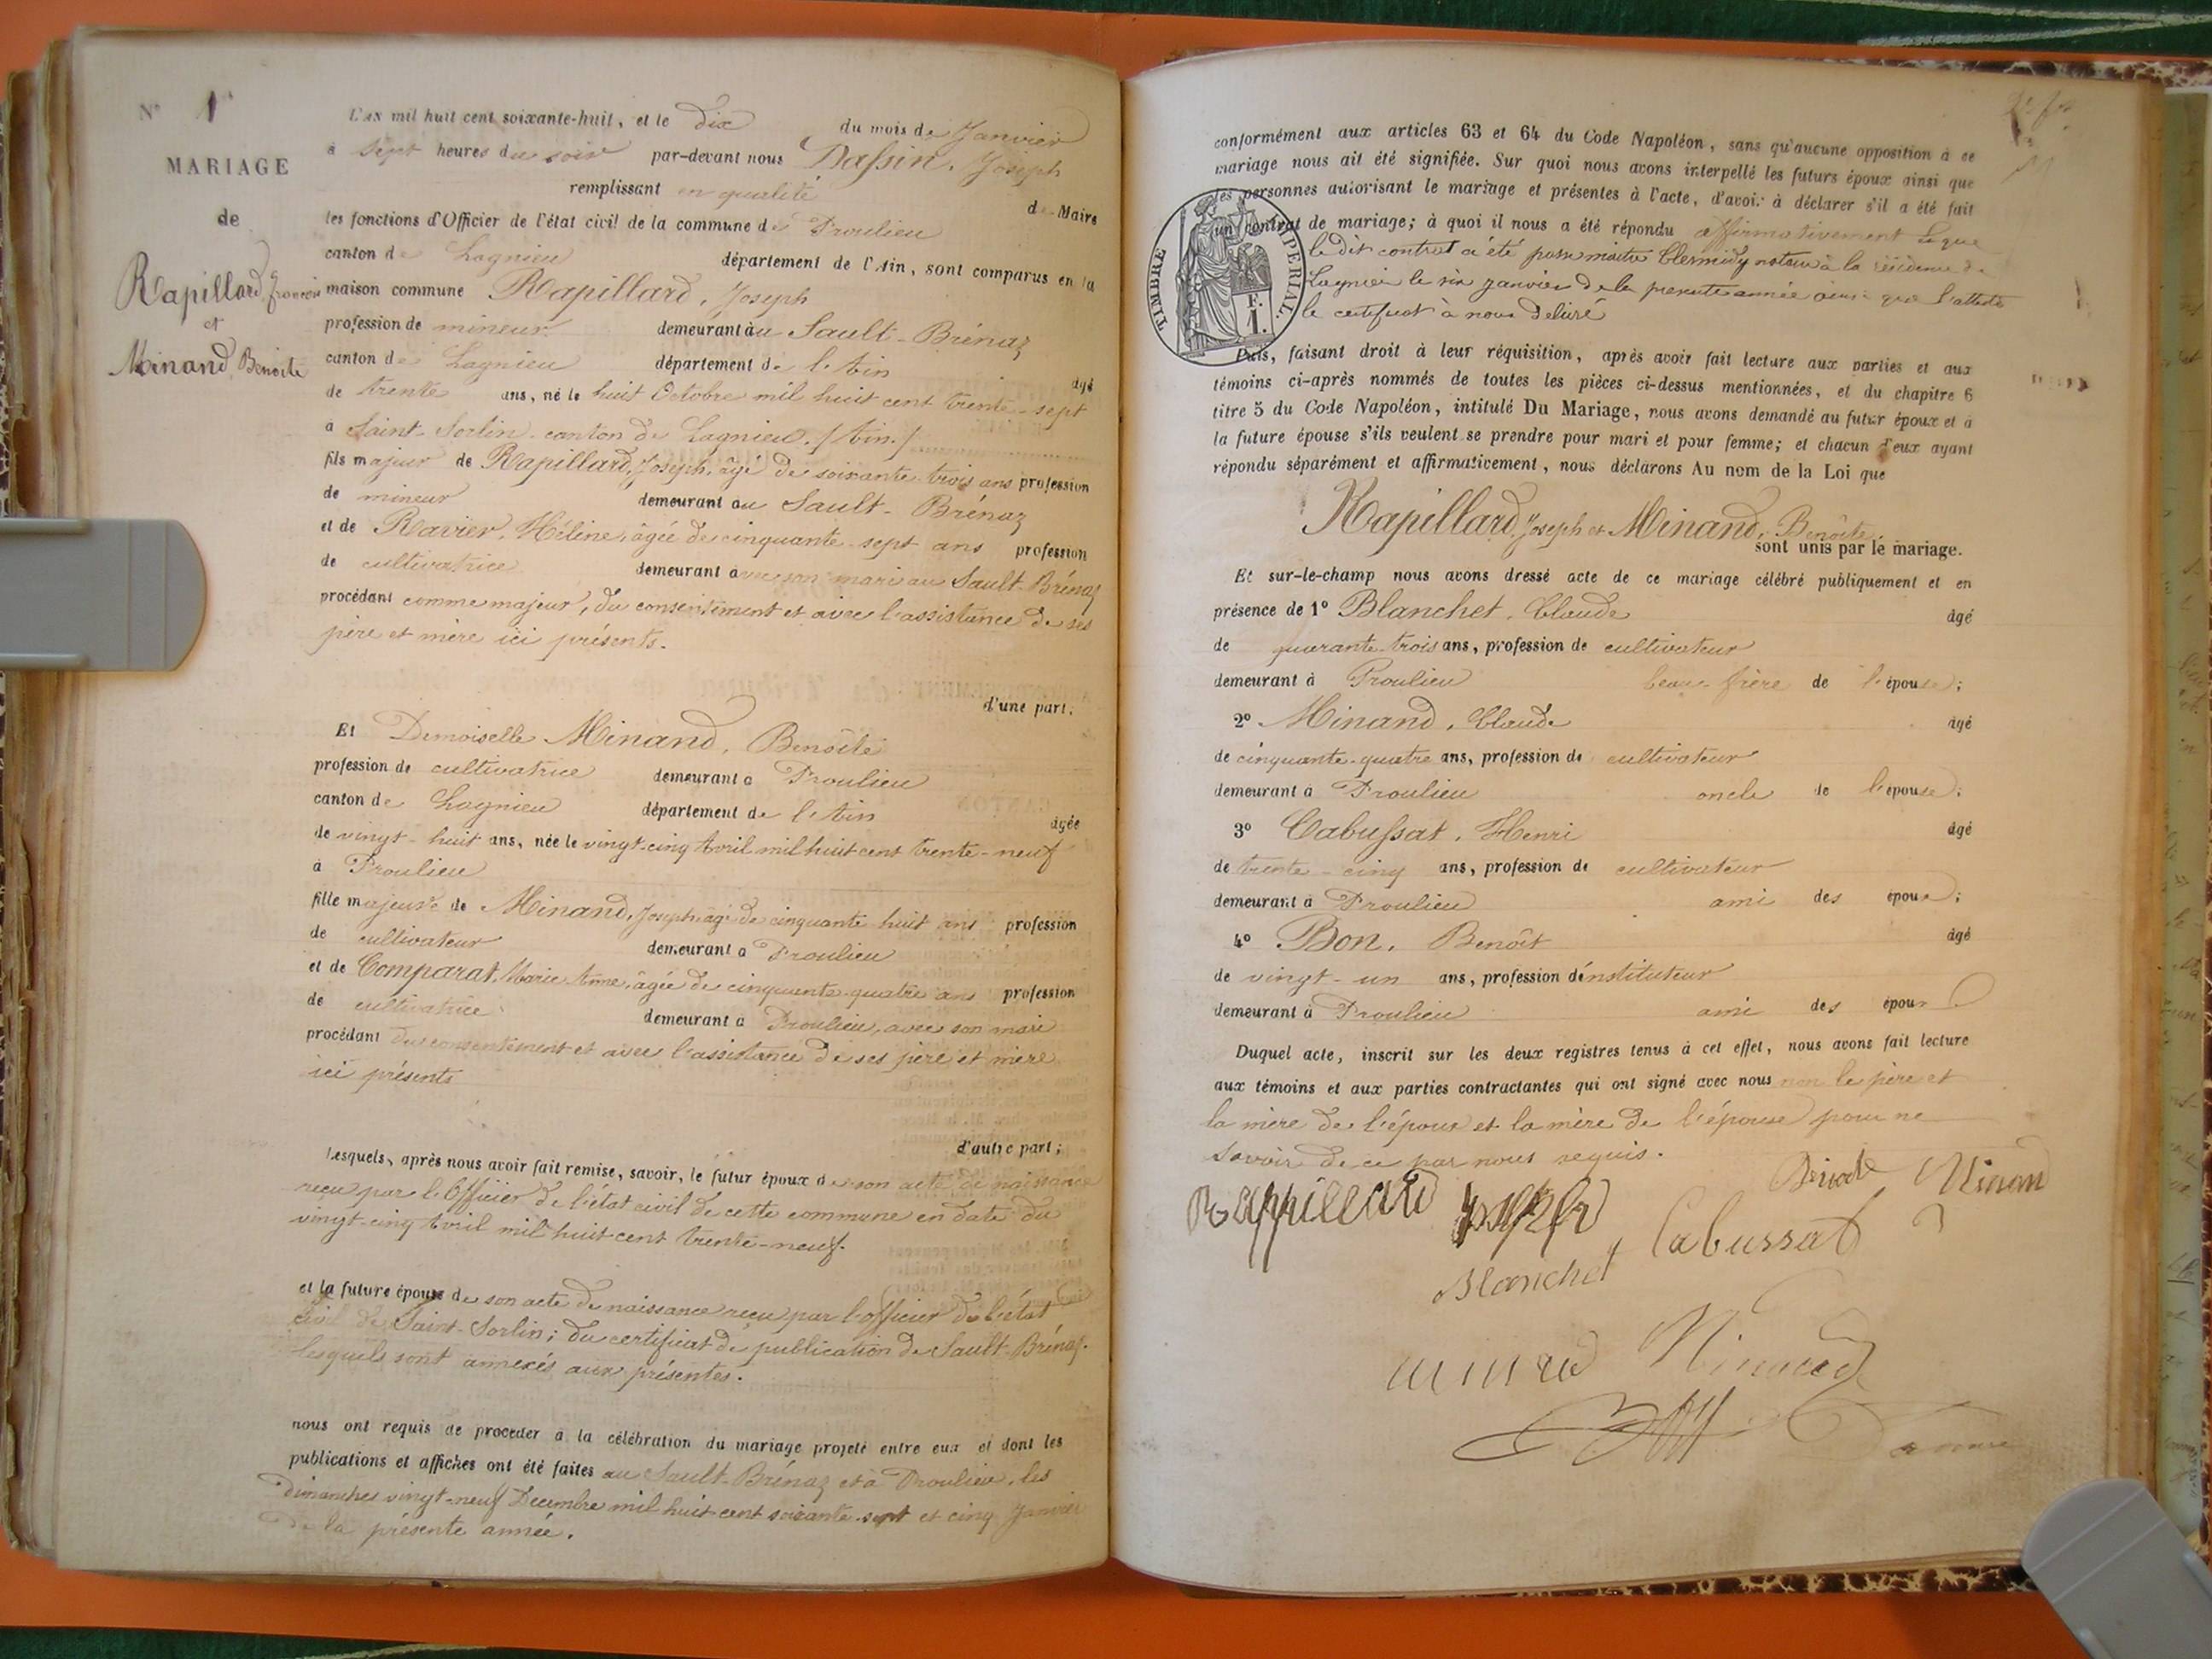 N° 1
MARIAGE
de
Rapillard, François
et
Minand, Benoite
L'AN mil huit cent soixante-huit, et le dix du mois de Janvier
à sept heures du soir par-devant nous Dassin, Joseph
remplissant en qualité de Maire
les fonctions d'Officier de l'état civil de la commune de Proulieu
canton de Lagnieu département de l'Ain, sont comparus en la
maison commune Rapillard, Joseph
profession de mineur demeurant au Sault-Brénaz
canton de Lagnieu département de l'Ain âgé
de trente ans, né le huit Octobre mil huit cent trente-sept
à Saint-Sorlin canton de Lagnieu. (Ain.)
fils majeur de Rapillard, Joseph, âgé de soixante-trois ans profession
de mineur demeurant au Sault-Brénaz
et de Ravier, Hélène, âgée de cinquante-sept ans profession
de cultivatrice demeurant avec son mari au Sault-Brénaz
procédant comme majeur, du consentement et avec l'assistance de ses
père et mère ici présents.
d'une part.
Et Demoiselle Minand, Benoîte
profession de cultivatrice demeurant à Proulieu
canton de Lagnieu département de l'Ain âgée
de vingt-huit ans, née le vingt-cinq Avril mil huit cent trente-neuf
à Proulieu
fille majeure de Minand, Joseph âgé de cinquante huit ans profession
de cultivateur demeurant à Proulieu
et de Comparat, Marie-Anne, âgée de cinquante-quatre ans profession
de cultivatrice demeurant à Proulieu, avec son mari
procédant du consentement et avec l'assistance de ses père et mère
ici présents
d'autre part;
Lesquels, après nous avoir fait remise, savoir, le futur époux de son acte de naissance
reçu par l'Officier de l'état civil de cette commune en date du
vingt-cinq Avril mil huit cent trente-neuf.
et la future épouse de son acte de naissance reçu par l'officier de l'état
civil de Saint-Sorlin; du certificat de publication de Sault-Brénaz.
Lesquels sont annexés aux présentes.
nous ont requis de procéder à la célébration du mariage projeté entre eux et dont les
publications et affiches ont été faites au Sault-Brénaz et à Proulieu, les
dimanches vingt-neuf Décembre mil huit cent soixante-sept et cinq Janvier
de la présente année.
conformément aux articles 63 et 64 du Code Napoléon, sans qu'aucune opposition à ce
mariage nous ait été signifiée. Sur quoi nous avons interpellé les futurs époux ainsi que
les personnes autorisant le mariage et présentes à l'acte, d'avoir à déclarer s'il a été fait
un contrat de mariage; à quoi il nous a été répondu affirmativement & que
le dit contrat a été passé maître Clermidy notaire à la résidence de
Lagnieu le six janvier de la presente année ainsi que l'atteste
le certificat à nous délivré
TIMBRE IMPERIAL.
F.
1.
Puis, faisant droit à leur réquisition, après avoir fait lecture aux parties et aux
témoins ci-après nommés de toutes les pièces ci-dessus mentionnées, et du chapitre 6
titre 5 du Code Napoléon, intitulé Du Mariage, nous avons demandé au futur époux et à
la future épouse s'ils veulent se prendre pour mari et pour femme; et chacun d'eux ayant
répondu séparément et affirmativement, nous déclarons Au nom de la Loi que
Rapillard, Joseph et Minand, Benoîte,
sont unis par le mariage.
Et sur-le-champ nous avons dressé acte de ce mariage célébré publiquement et en
présence de 1° Blanchet, Claude âgé
de quarante-trois ans, profession de cultivateur
demeurant à Proulieu beau-frère de l'épouse;
2° Minand, Claude âgé
de cinquante-quatre ans, profession de cultivateur
demeurant à Proulieu oncle de l'épouse;
3° Cabussat, Henri âgé
de trente-cinq ans, profession de cultivateur
demeurant à Proulieu ami des époux;
4° Bon, Benoît âgé
de vingt-un ans, profession d'instituteur
demeurant à Proulieu ami des époux
Duquel acte, inscrit sur les deux registres tenus à cet effet, nous avons fait lecture
aux témoins et aux parties contractantes qui ont signé avec nous non le père et
la mère de l'époux et la mère de l'épouse pour ne
savoir de ce par nous requis.
Rappillard Benoite Minand
Cabussat
Blanchet
Minand